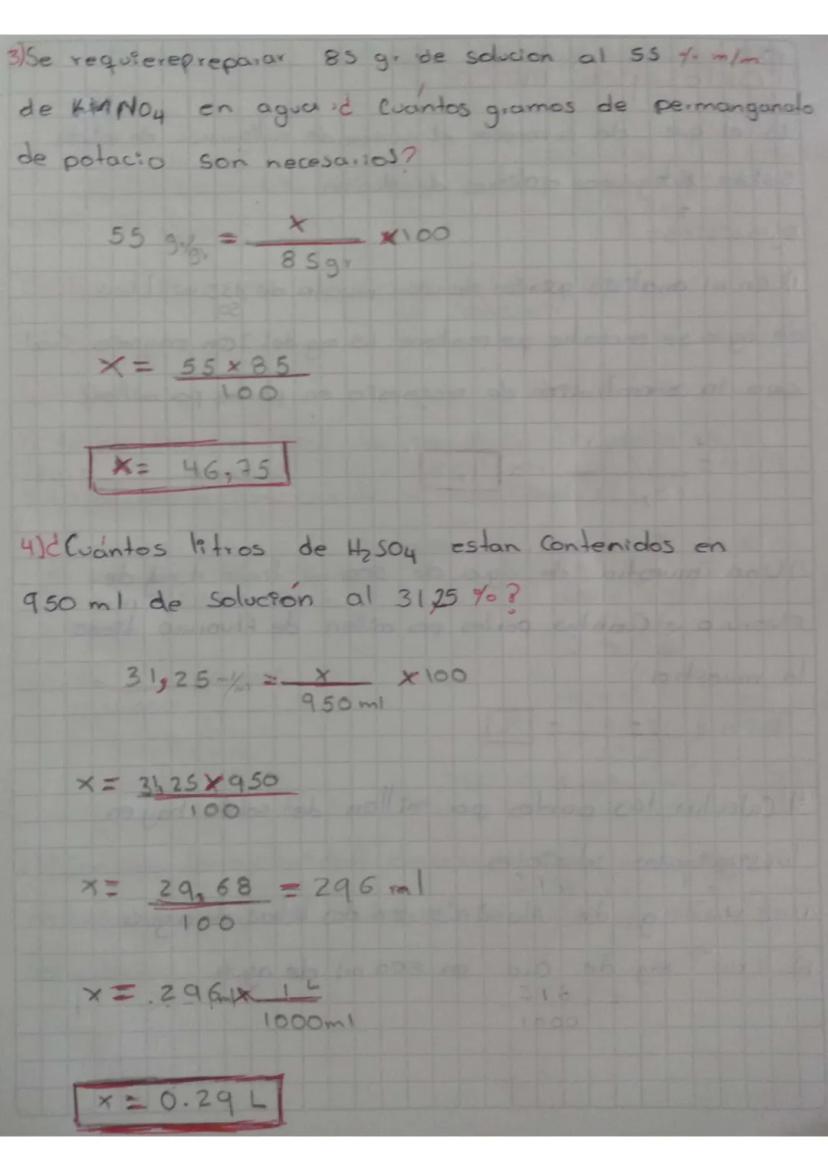 3) Se requiere preparar 85 gr de solucion al 55 % m/m
de KMNO4 en agua ¿ Cuántos gramos de permanganato
de potacio son necesarios?
55 gr/gr = x / 85gr x100
x = 55 x 85 / 100
x = 46,75
4) ¿Cuántos litros de H2SO4 estan contenidos en
950 ml de solución al 31,25 %?
31,25 = x / 950 ml x 100
x = 31,25 x 950 / 100
x = 29,68 / 100 = 296 ml
x = 296 x 1 L / 1000ml
x = 0.29 L